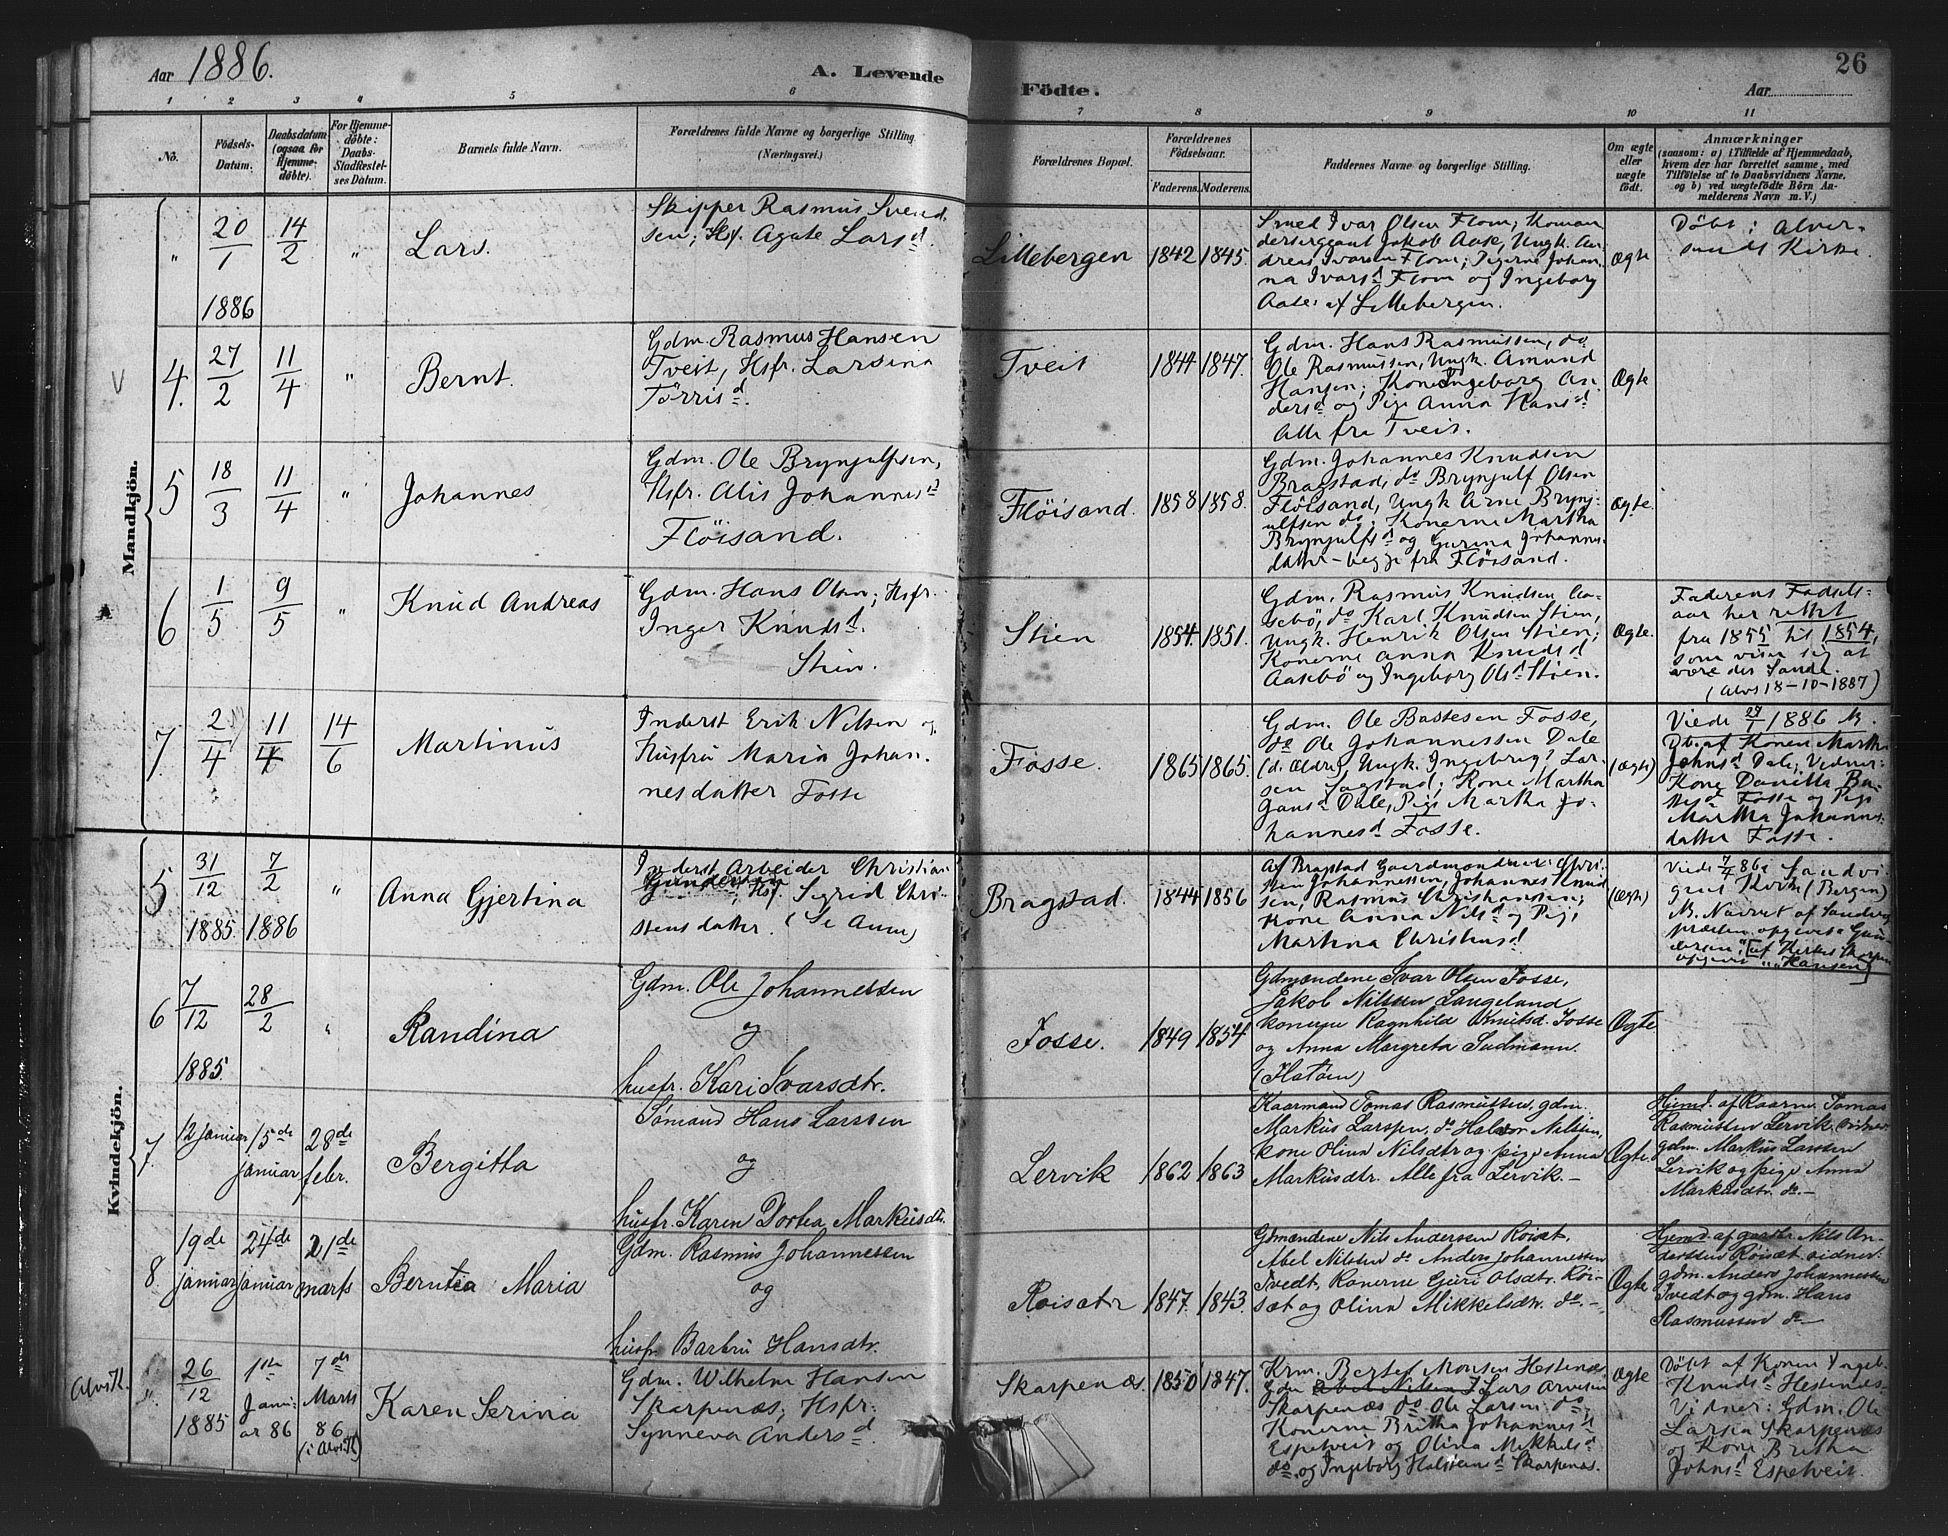 Aar 1886.
A. Levende
Födte.
Aar
26
1 2 3 4 5 6 7 8 9 10 11
No.
Födsels-
Datum.
Daabsdatum
(ogsaa for
Hjemme-
döbte).
For Hjemme-
döbte:
Daabs-
Stadfæstel-
ses Datum.
Barnets fulde Navn.
Forældrenes fulde Navne og borgerlige Stilling.
(Næringsvei.)
Forældrenes Bopæl.
Forældrenes
Födselsaar.
Faderens. Moderens.
Faddernes Navne og borgerlige Stilling.
Om ægte
eller
uægte
födt.
Anmærkninger
(saasom: a) i Tilfælde af Hjemmedaab,
hvem der har forrettet samme, med
Tilföielse af to Daabsvidners Navne,
og b) ved uægtefödte Börn An-
melderens Navn m. V.)
Mandkjön.
"
20/1
1886
14/2
"
Lars.
Skipper Rasmus Svend-
sen; Hf. Agate Larsd.
Lillebergen
1842 1845.
Smed Ivar Olsen Flom; Koman
dersergeant Jakob Aase, Ungk. An-
dreas Ivarsen Flom; Pigerne Johan-
na Ivarsd Flom og Ingeborg
Aase: af Lillebergen.
Ægte
Döbt i Alver-
sunds Kirke.
4.
27/2
11/4
"
Bernt.
Gdm. Rasmus Hansen
Tveit, Hsfr. Larsina
Törrisd.
Tveit
1844 1847.
Gdm. Hans Rasmussen, do
Ole Rasmussen, Ungk. Amund
Hansen; Kone Ingeborg An-
dersd og Pige Anna Hansd
Alle fra Tveit.
Ægte
5
18/3
11/4
"
Johannes
Gdm. Ole Brynjulfsen,
Hsfr. Alis Johannesd
Flöisand.
Flöisand.
1858 1858.
Gdm. Johannes Knudsen
Bragstad, do Brynjulf Olsen
Flöisand, Ungk Arne Brynj-
ulfsen do; Konerne Martha
Brynjulfsd og Gurina Johannes-
datter – begge fra Flöisand.
Ægte.
6
1/5
9/5
"
Knud Andreas
Gdm. Hans Olsen; Hsfr.
Inger Knudsd.
Stien.
Stien
1854. 1851.
Gdm. Rasmus Knudsen Aa-
sebö, do Karl Knudsen Stien,
Ungk. Henrik Olsen Stien;
Konerne Anna Knudsd
Aasebö og Ingeborg Olsd Stien.
Ægte.
Faderens Födsels-
aar her rettet
fra 1855 til 1854,
som viser sig at
være det Sande.
(Alvs 18-10-1887)
7.
2/4
11/4
14/6
Martinus
Inderst Erik Nilsen og
Husfru Maria Johan-
nesdatter Fosse
Fosse.
1865 1865.
Gdm. Ole Bastesen Fosse,
do Ole Johannessen Dale
(d. Ældre) Ungk. Ingebrigt Lar-
sen Sagstad; Kone Martha
Jansd Dale, Pige Martha Jo-
hannesd Fosse.
(Ægte)
Viede 24/1 1886 N.
Db. af Konen Martha
Johnsd Dale; Vidner:
Kone Danilla Ba-
stesd Fosse og Pige
Martha Johannes-
datter Fosse.
Kvindekjön.
5
31/12
1885
7/2
1886
"
Anna Gjertina
Inderst Arbeider Christian
Gundersen, Hsf. Sigrid Chri-
stensdatter. (Se Anm)
Bragstad.
1844 1856
Af Bragstad Gaardmændene: Chri-
sten Johannessen, Johannes Knud
sen, Rasmus Christiansen;
Kone Anna Nilsd og Pige
Martina Christensd
(Ægte)
Viede 7/4 86 i Sandvi-
gens Kirke (Bergen)
N. Navnet af Sandvig
præsten opgivet "Gun-
dersen", af Kirkes.
opgivet "Hansen"
6
7/12
1885.
28/2
"
Randina
Gdm. Ole Johannessen
og
husfr. Kari Ivarsdtr.
Fosse.
1849 1854
Gdmændene Ivar Olsen Fosse,
Jakob Nilssen Langeland
konerne Ragnhild Knutsd. Fosse
og Anna Margreta Sudmann.
(Hatöen)
Ægte
7.
12 januar
15de
januar
28de
febr.
Bergitta
Sömand Hans Larssen
og
husfr. Karen Dortea Markusdtr.
Lervik
1862 1863
Kaarmand Tomas Rasmussen, gdm.
Markus Larssen, do Haldor Nilssen,
kone Olina Nilsdtr og pige Anna
Markusdtr. Alle fra Lervik. –
Ægte.
Hjemd. af Kaarm. Tomas
Rasmussen Lervik; vidner:
gdm. Markus Larssen
Lervik og pige Anna
Markusdtr. do. –
8.
19de
januar
24de
januar
21de
marts
Berntea Maria
Gdm. Rasmus Johannessen
og
husfr. Barbru Hansdtr.
Röisætr
1847. 1843.
Gdmændene Nils Anderssen Röisæt,
Abel Nilssen do Anders Johannessen
Tvedt, Konerne Guri Olsdtr. Röi-
sæt og Olina Mikkelsdtr. do. –
Ægte
Hjemd af gardbr. Nils An-
derssen Röisæt vidner:
gdm. Anders Johannessen
Tvedt og gdm. Hans
Rasmussen do –
Alvs K.
"
26/12
1885
1ste
Janu-
ar 86
7de
Marts
86
(i Alvs K)
Karen Serina
Gdm. Wilhelm Hansen
Skarpenæs; Hsfr:
Synneva Andersd.
Skarpenæs.
1850 1847.
Krm. Bertel Monsen Hestenæs
Gdm Abel Nilsen Lars Arnesen
Skarpenæs do Ole Larsen do.
Konerne Britha Johannesd
Espetveit og Olina Mikkelsd
do. og Ingeborg Halsteinsd Skarpenæs.
Ægte
Döbt af Konen Ingeb.
Knudsd Hestenæs.
Vidner: Gdm. Ole
Larsen Skarpenæs
og Kone Britha
Johnsd Espetveit.